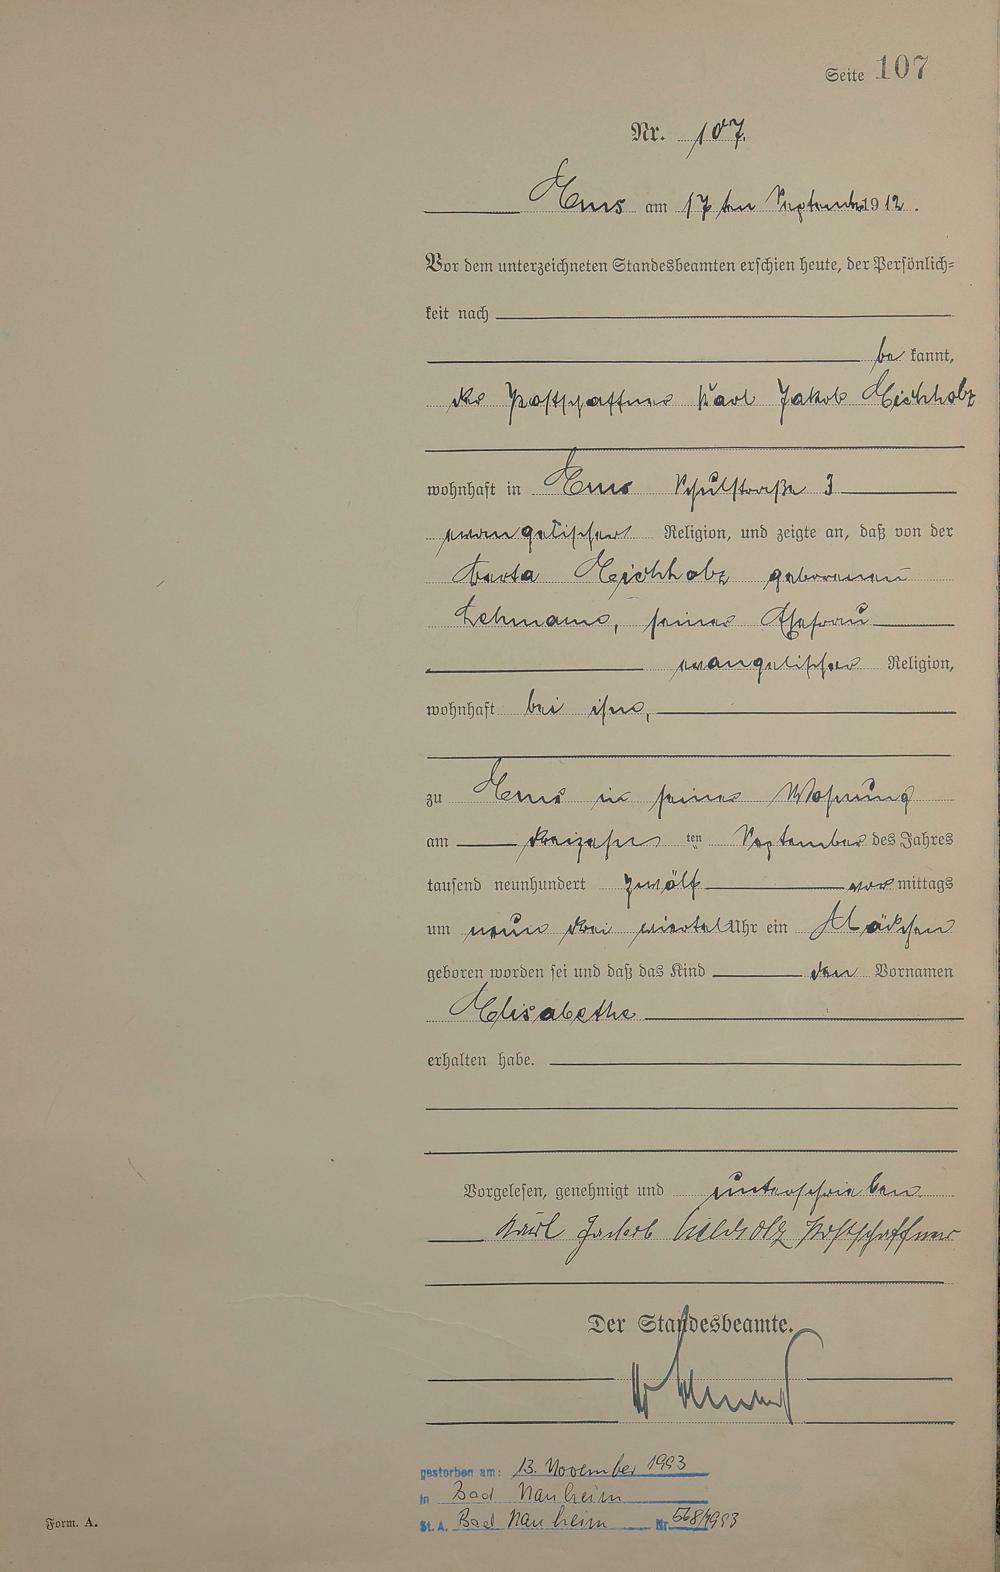 Seite 107
Nr. 107.
Ems am 17 ten September 1912.
Vor dem unterzeichneten Standesbeamten erschien heute, der Persönlich=
keit nach
be kannt,
der Postschaffner Karl Jakob Eichholz
wohnhaft in Ems Schulstraße 3
evangelischer Religion, und zeigte an, daß von der
Berta Eichholz geborenen
Lehmann, seiner Ehefrau
evangelischer Religion,
wohnhaft bei ihm,
zu Ems in seiner Wohnung
am dreizehn ten September des Jahres
tausend neunhundert zwölf vor mittags
um neun drei viertel Uhr ein Mädchen
geboren worden sei und daß das Kind den Vornamen
Elisabethe
erhalten habe.
Vorgelesen, genehmigt und unterschrieben
Karl Jakob Eichholz Postschaffner
Der Standesbeamte.
gestorben am: 13. November 1993
in Bad Nauheim
St. A. Bad Nauheim Nr 568/1993
Form. A.